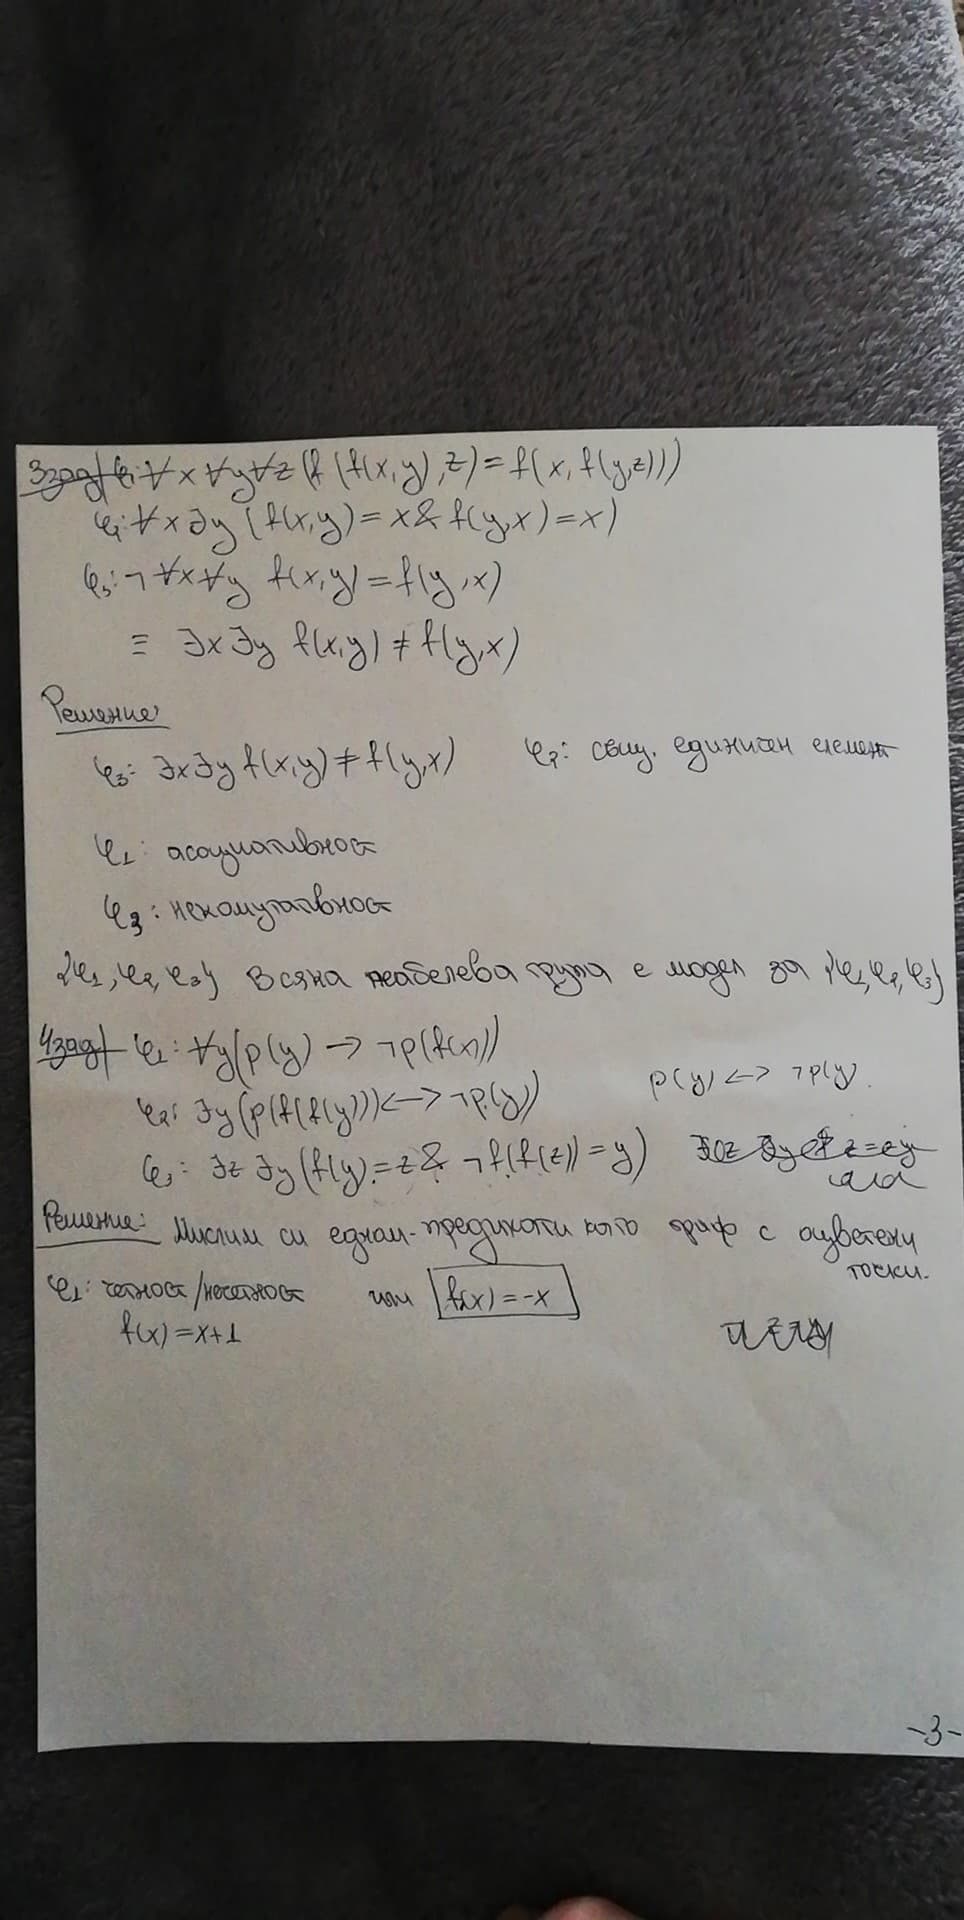 3зад| φ₁: ∀x∀y∀z (f(f(x,y),z)=f(x,f(y,z)))
φ₂: ∀x∃y (f(x,y)=x & f(y,x)=x)
φ₃: ¬∀x∀y f(x,y)=f(y,x)
≡ ∃x∃y f(x,y)≠f(y,x)
Решение:
φ₃: ∃x∃y f(x,y)≠f(y,x) φ₂: същ. единичен елемент
φ₁: асоциативност
φ₃: некомутативност
{φ₁, φ₂, φ₃} Всяка неабелева група е модел за {φ₁, φ₂, φ₃}
4зад| φ₁: ∀y(p(y) → ¬p(f(x)))
p(y) <-> ¬p(y).
φ₂: ∃y(p(f(f(y))) <-> ¬p(y))
φ₃: ∃z ∃y (f(y)=z & ¬f(f(z))=y)
Решение: Мислим си едном. предикати като граф с оцветени точки.
φ₁: четност/нечетност или f(x)=-x
f(x)=x+1
-3-